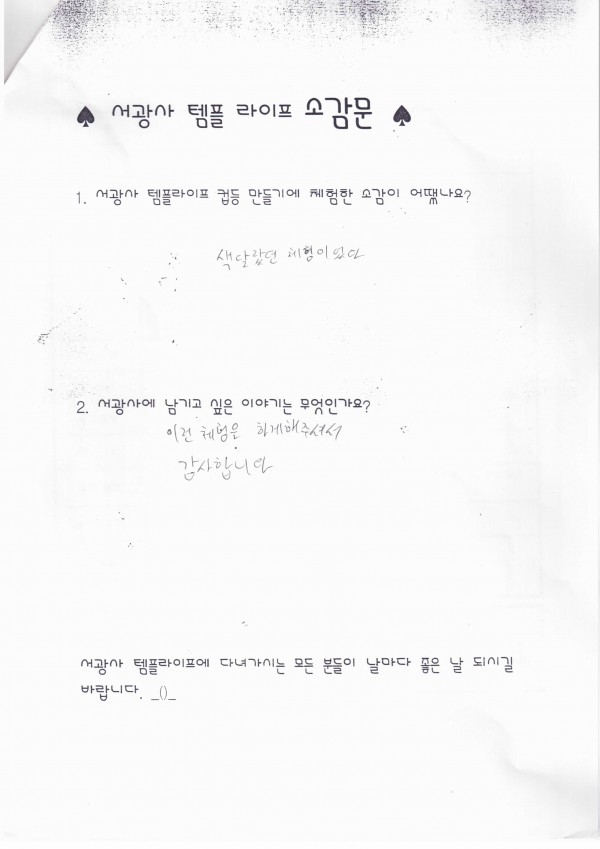 ♠ 서광사 템플 라이프 소감문 ♠
1. 서광사 템플라이프 컵등 만들기에 체험한 소감이 어땠나요?
색달랐던 체험이었다
2. 서광사에 남기고 싶은 이야기는 무엇인가요?
이런 체험을 하게해주셔서
감사합니다
서광사 템플라이프에 다녀가시는 모든 분들이 날마다 좋은 날 되시길
바랍니다. _()_